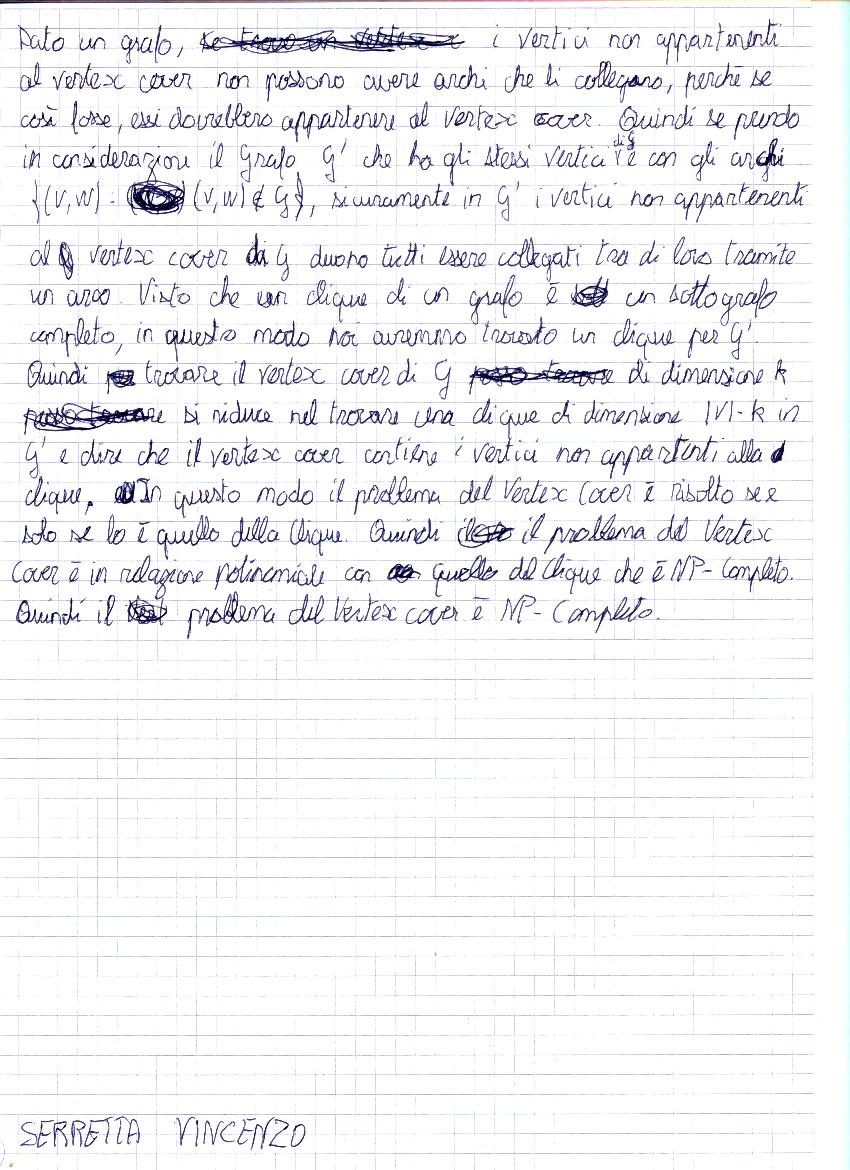 Dato un grafo, i vertici non appartenenti
al vertex cover non possono avere archi che li collegano, perchè se
così fosse, essi dovrebbero appartenere al vertex cover. Quindi se prendo
in considerazione il Grafo G' che ha gli stessi vertici di G e con gli archi
{(v,w) : (v,w) ∉ G}, sicuramente in G' i vertici non appartenenti
al vertex cover di G devono tutti essere collegati tra di loro tramite
un arco. Visto che un clique di un grafo è un sottografo
completo, in questo modo noi avremmo trovato un clique per G'.
Quindi trovare il vertex cover di G di dimensione k
si riduce nel trovare una clique di dimensione |V|-k in
G' e dire che il vertex cover contiene i vertici non appartenti alla
clique. In questo modo il problema del Vertex Cover è risolto se e
solo se lo è quello della Clique. Quindi il problema del Vertex
Cover è in relazione polinomiale con quello del Clique che è NP-Completo.
Quindi il problema del Vertex cover è NP-Completo.
SERRETTA VINCENZO